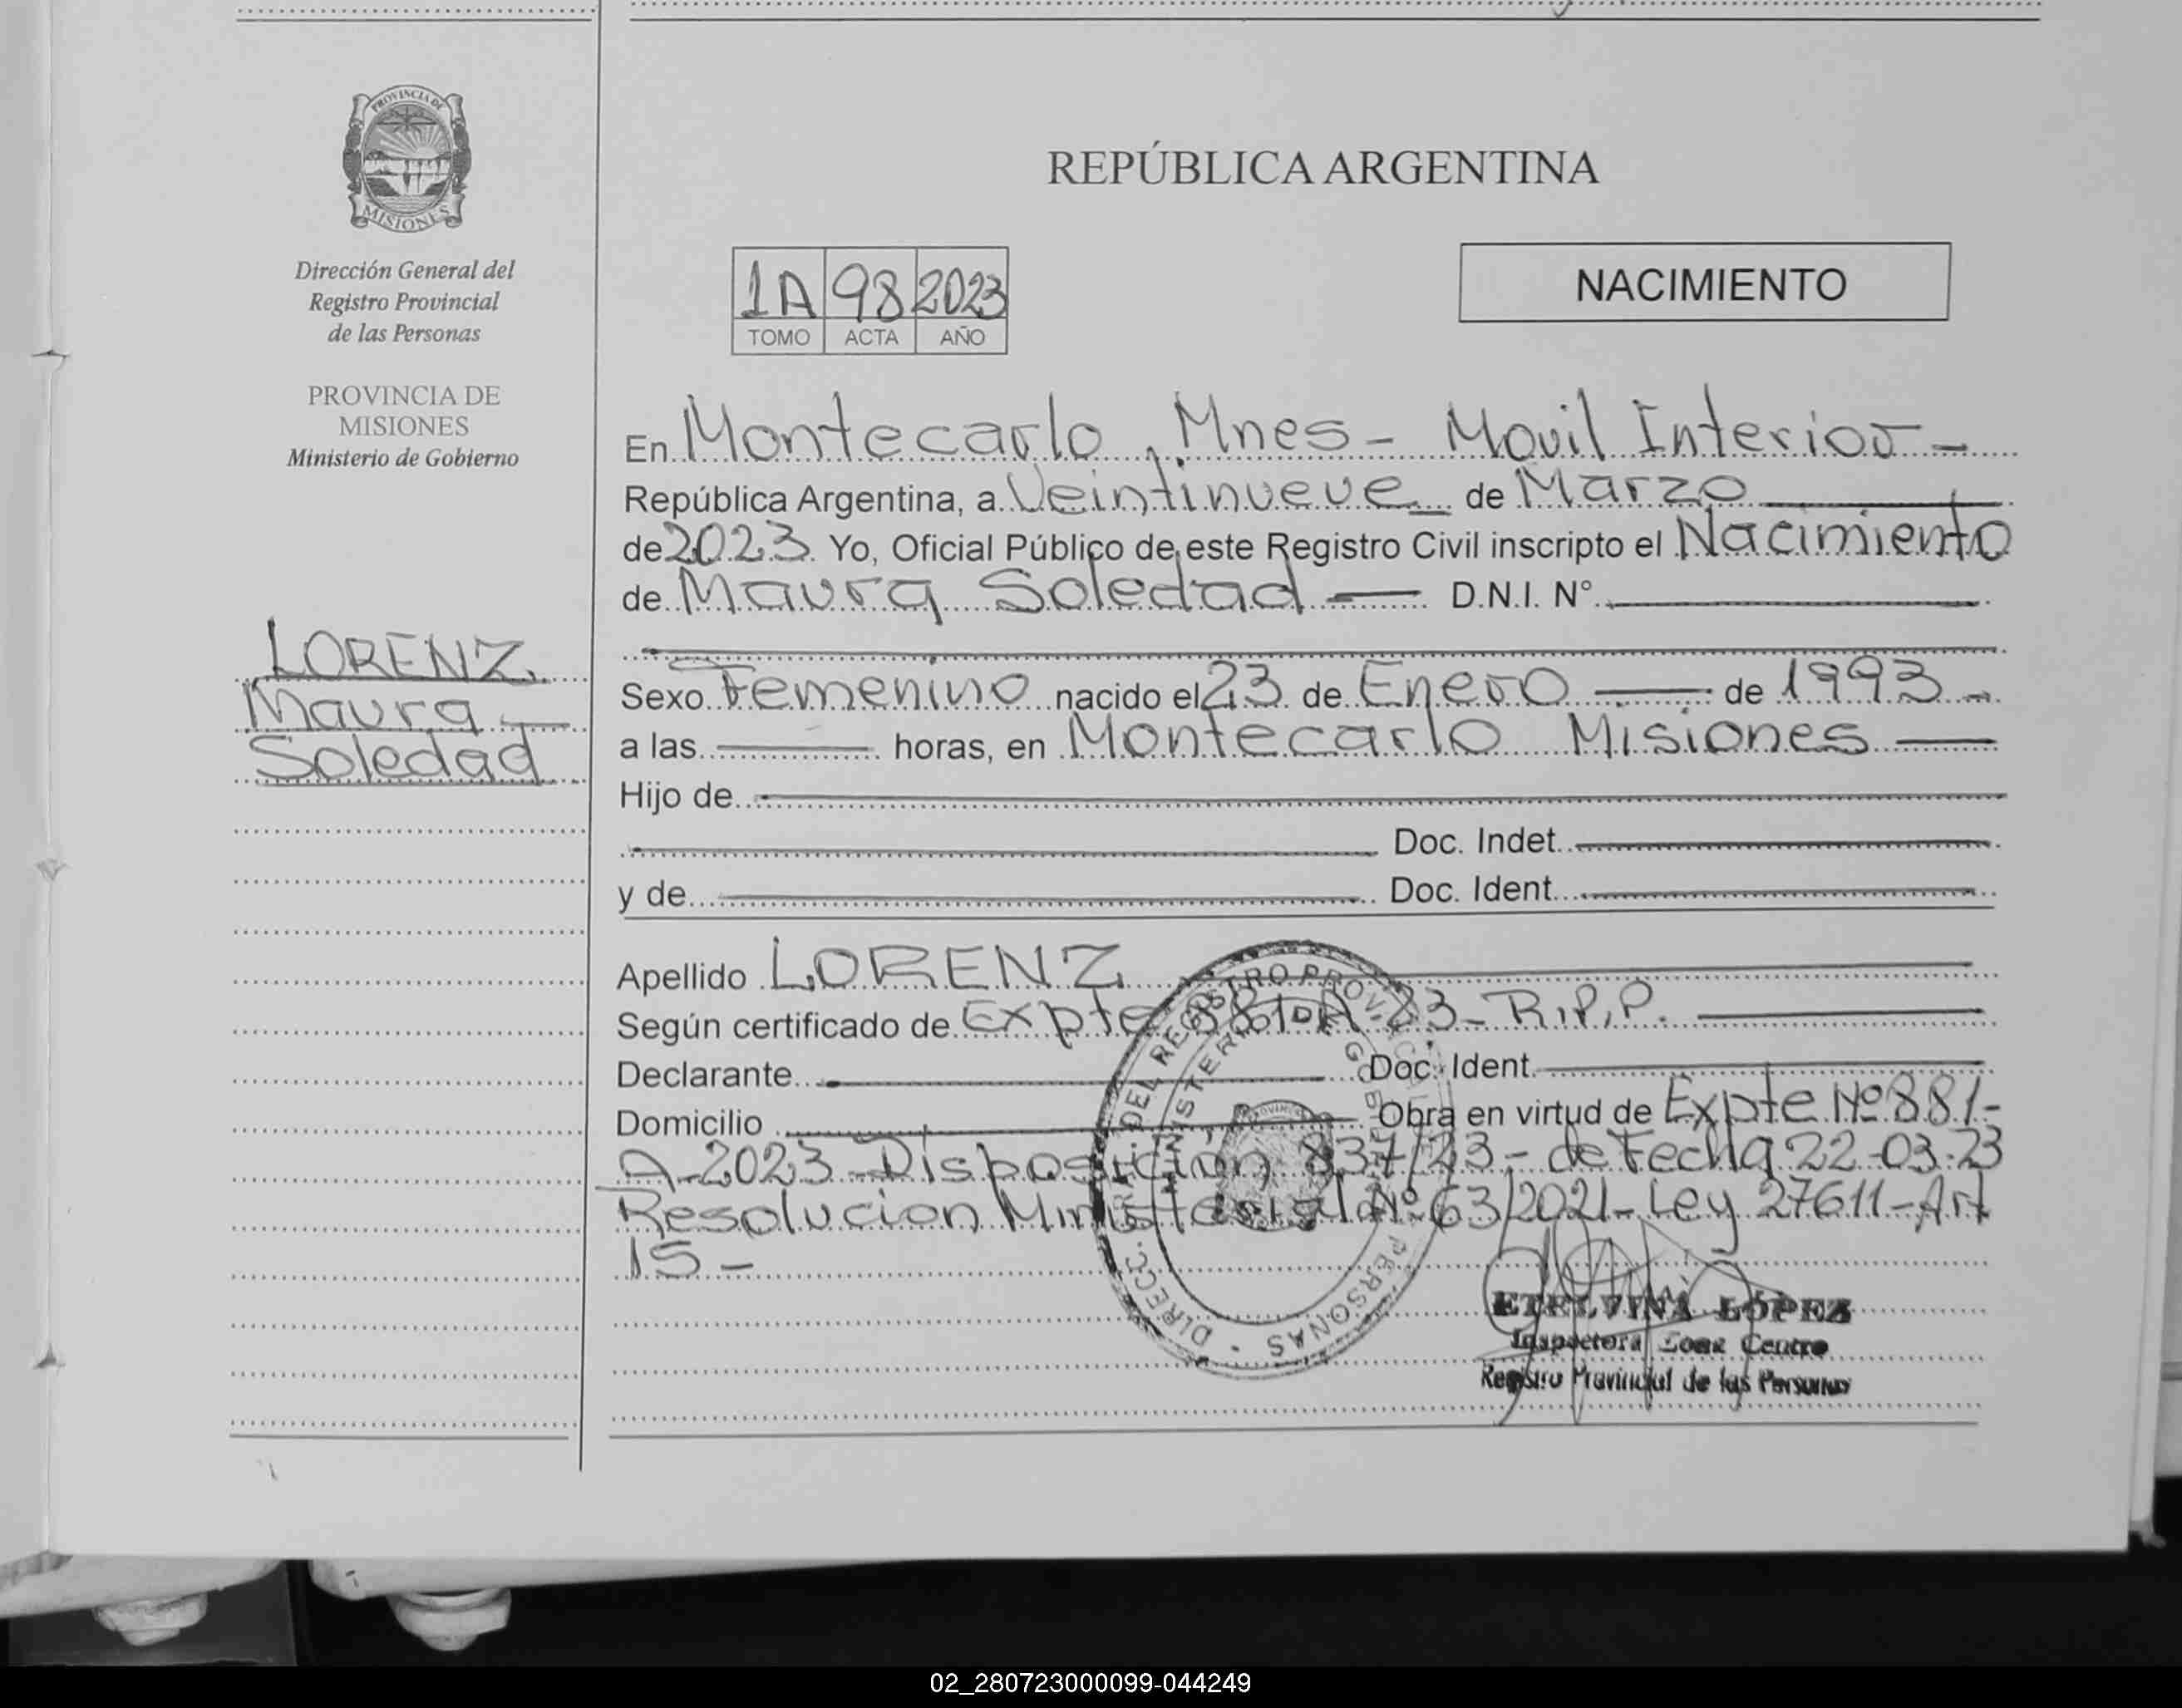 PROVINCIA DE
MISIONES
Dirección General del
Registro Provincial
de las Personas
PROVINCIA DE
MISIONES
Ministerio de Gobierno
LORENZ
Maura
Soledad
REPÚBLICA ARGENTINA
1A 98 2023
TOMO ACTA AÑO
NACIMIENTO
En Montecarlo, Mnes - Movil Interior -
República Argentina, a Veintinueve de Marzo
de 2023 Yo, Oficial Público de este Registro Civil inscripto el Nacimiento
de Maura Soledad D.N.I. N°
Sexo Femenino nacido el 23 de Enero de 1993
a las horas, en Montecarlo Misiones
Hijo de
Doc. Indet.
y de Doc. Ident.
Apellido LORENZ
Según certificado de Expte 23 - R.P.P.
Declarante Doc. Ident.
Domicilio Obra en virtud de Expte Nº 881-
A-2023 Disposicion 837/23 - de Fecha 22-03-23
Resolucion Ministerial Nº 63/2021 - Ley 27611 - Art
15 -
DIRECC. GRAL. DEL REGISTRO PROVINCIAL PERSONAS
ETELVINA LÓPEZ
Inspectora Zona Centro
Registro Provincial de las Personas
02_280723000099-044249